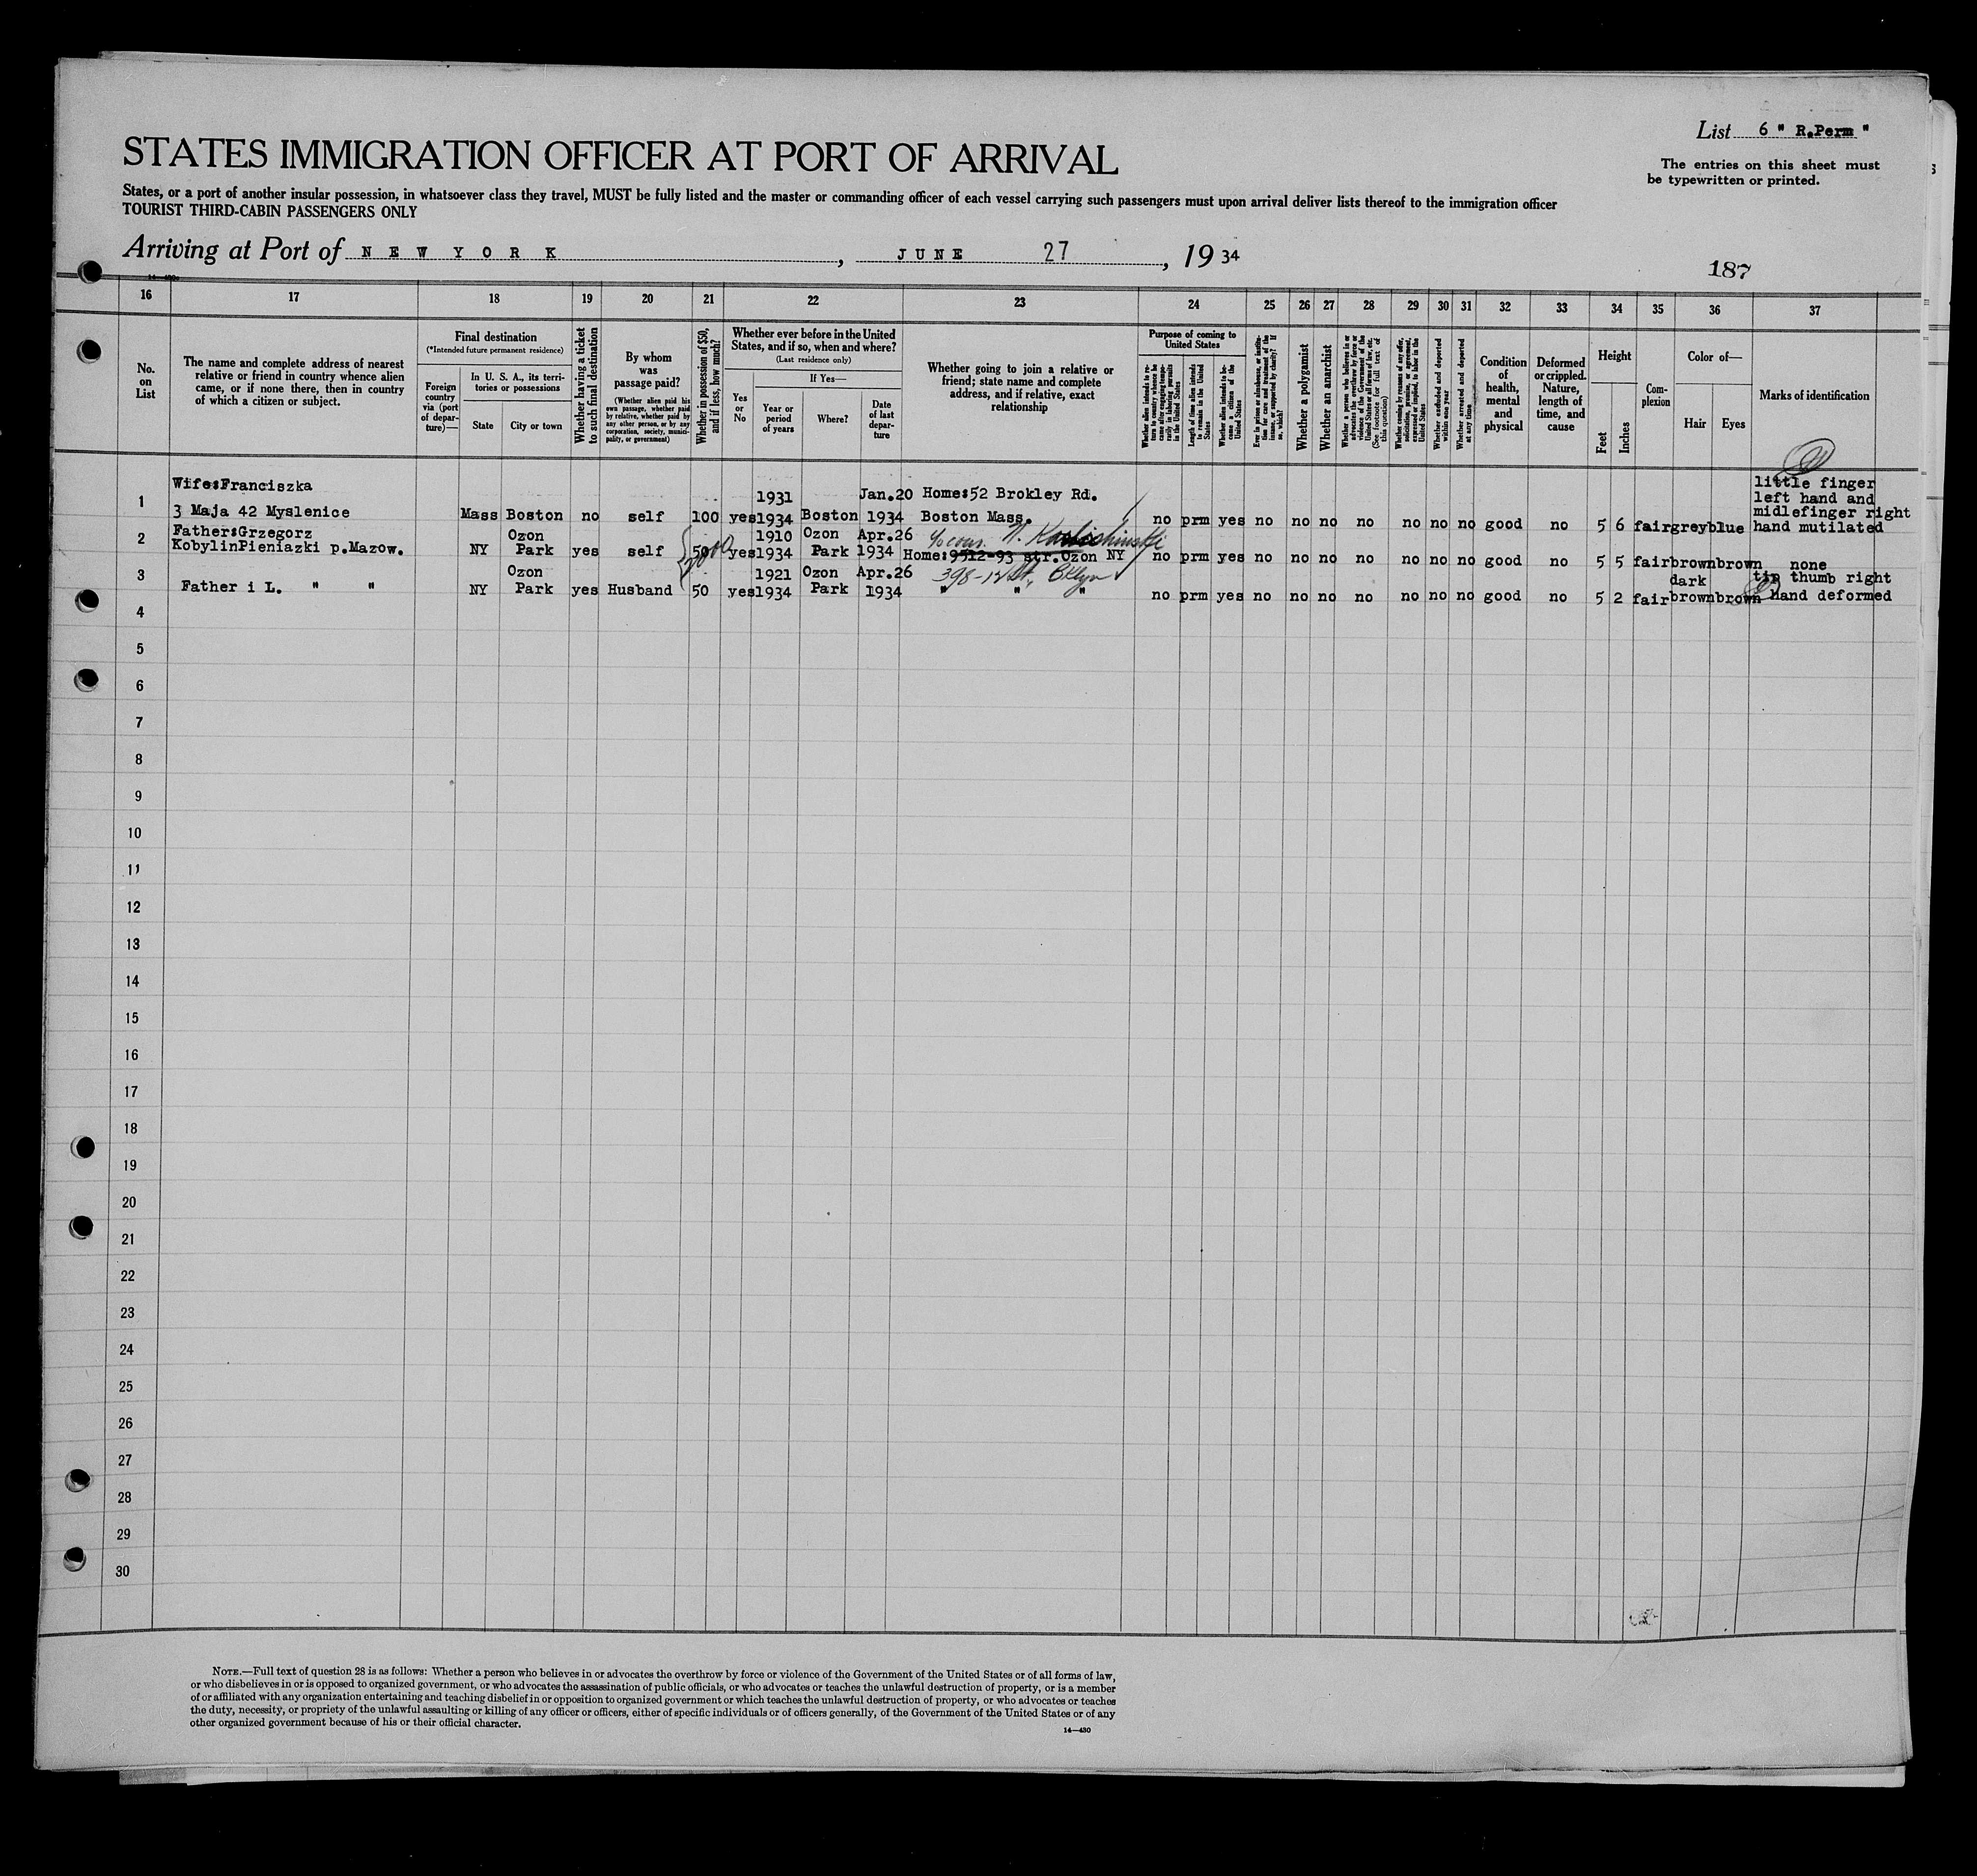 List 6 " R.Perm "
STATES IMMIGRATION OFFICER AT PORT OF ARRIVAL
The entries on this sheet must
be typewritten or printed.
States, or a port of another insular possession, in whatsoever class they travel, MUST be fully listed and the master or commanding officer of each vessel carrying such passengers must upon arrival deliver lists thereof to the immigration officer
TOURIST THIRD-CABIN PASSENGERS ONLY
Arriving at Port of NEW YORK, JUNE 27, 1934
187
14—430
16 17 18 19 20 21 22 23 24 25 26 27 28 29 30 31 32 33 34 35 36 37
No.
on
List
The name and complete address of nearest
relative or friend in country whence alien
came, or if none there, then in country
of which a citizen or subject.
Final destination
(*Intended future permanent residence)
Foreign
country
via (port
of depar-
ture)—
In U. S. A., its terri-
tories or possessions
State
City or town
Whether having a ticket
to such final destination
By whom
was
passage paid?
(Whether alien paid his
own passage, whether paid
by relative, whether paid by
any other person, or by any
corporation, society, munici-
pality, or government)
Whether in possession of $50,
and if less, how much?
Whether ever before in the United
States, and if so, when and where?
(Last residence only)
Yes
or
No
If Yes—
Year or
period
of years
Where?
Date
of last
depar-
ture
Whether going to join a relative or
friend; state name and complete
address, and if relative, exact
relationship
Purpose of coming to
United States
Whether alien intends to re-
turn to country whence he
came after engaging tempo-
rarily in laboring pursuits
in the United States
Length of time alien intends
to remain in the United
States
Whether alien intends to be-
come a citizen of the
United States
Ever in prison or almshouse, or institu-
tion for care and treatment of the
insane, or supported by charity? If
so, which?
Whether a polygamist
Whether an anarchist
Whether a person who believes in or
advocates the overthrow by force or
violence of the Government of the
United States or all forms of law, etc.
(See footnote for full text of
this question)
Whether coming by reasons of any offer,
solicitation, promise, or agreement,
expressed or implied, to labor in the
United States
Whether excluded and deported
within one year
Whether arrested and deported
at any time
Condition
of
health,
mental
and
physical
Deformed
or crippled.
Nature,
length of
time, and
cause
Height
Feet
Inches
Com-
plexion
Color of—
Hair
Eyes
Marks of identification
Wife:Franciszka
1931 Jan.20 Home:52 Brokley Rd.
little finger
left hand and
midlefinger right
1 3 Maja 42 Myslenice Mass Boston no self 100 yes 1934 Boston 1934 Boston Mass. no prm yes no no no no no no no good no 5 6 fair grey blue hand mutilated
Father:Grzegorz Ozon 1910 Ozon Apr.26
2 KobylinPieniazki p.Mazow. NY Park yes self 50 yes 1934 Park 1934 Home:9512-93 str.Ozon NY no prm yes no no no no no no no good no 5 5 fair brown brown none
Ozon 1921 Ozon Apr.26 398-12 St, Bklyn dark tip thumb right
3 Father i L. " " NY Park yes Husband 50 yes 1934 Park 1934 " " " no prm yes no no no no no no no good no 5 2 fair brown brown hand deformed
4
5
6
7
8
9
10
11
12
13
14
15
16
17
18
19
20
21
22
23
24
25
26
27
28
29
30
NOTE.—Full text of question 28 is as follows: Whether a person who believes in or advocates the overthrow by force or violence of the Government of the United States or of all forms of law,
or who disbelieves in or is opposed to organized government, or who advocates the assassination of public officials, or who advocates or teaches the unlawful destruction of property, or is a member
of or affiliated with any organization entertaining and teaching disbelief in or opposition to organized government or which teaches the unlawful destruction of property, or who advocates or teaches
the duty, necessity, or propriety of the unlawful assaulting or killing of any officer or officers, either of specific individuals or of officers generally, of the Government of the United States or of any
other organized government because of his or their official character.
14—430